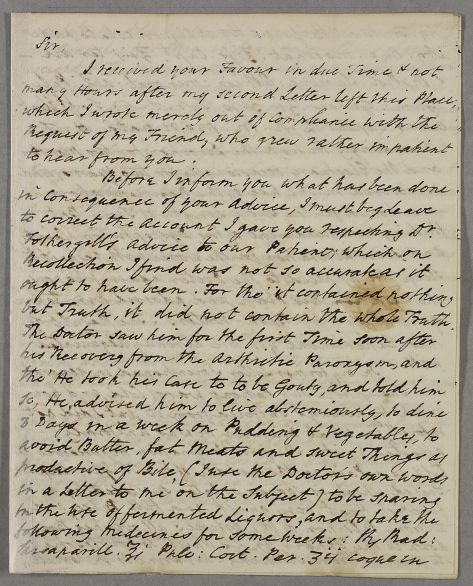 Sir,
I received your Favour in due Time & not
many Hours after my second Letter left this Place,
which I wrote merely out of Compliance with the
Request of my Friend, who grew rather impatient
to hear from you.
Before I inform you what has been done
in Consequence of your advice, I must beg leave
to correct the account I gave you respecting Dr.
Fothergill's advice to our Patient, which on
Recollection I find was not so accurate as it
ought to have been. For tho' it contained nothing
but Truth, it did not contain the whole Truth.
The Doctor saw him for the first Time soon after
his Recovery from the Arthritic Paroxysm, and
tho' He took his Case to to be Gouty, and told him
so, He advised him to live abstemiously, to dine
3 Days in a week on Pudding & Vegetables, to
avoid Butter, fat Meats and sweet Things as
productive of Bile, (I use the Doctor's own words
in a Letter to me on the Subject) to be sparing
in the Use of fermented Liquors, and to take the
following medecines for some weeks: Rx Rad:
Sarsaparill. Pulv: Cort. Per. coque in